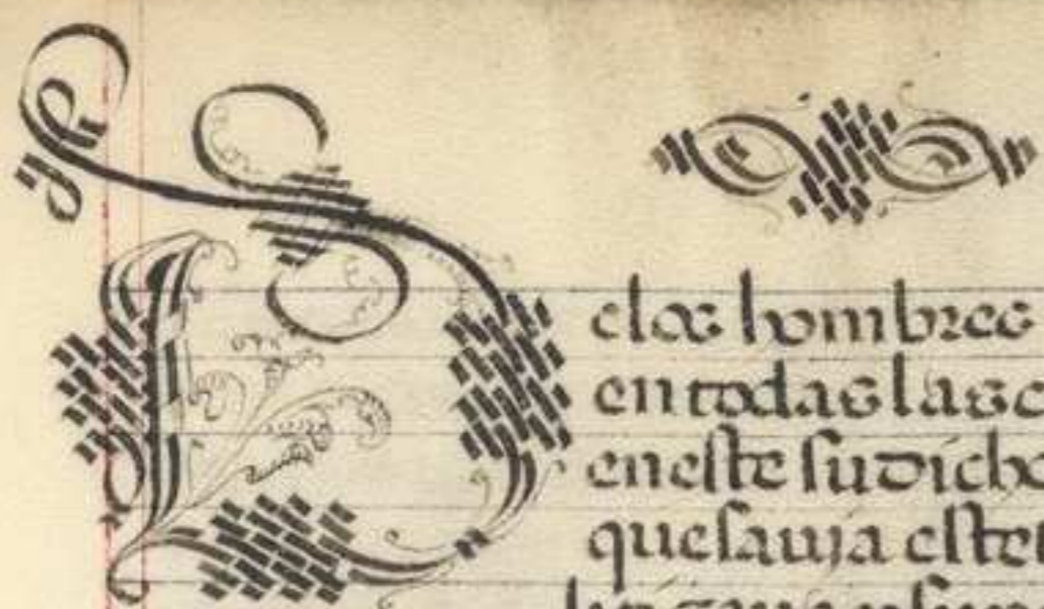 Delos hombres
en todas las c
en este su dicho
que sauia este